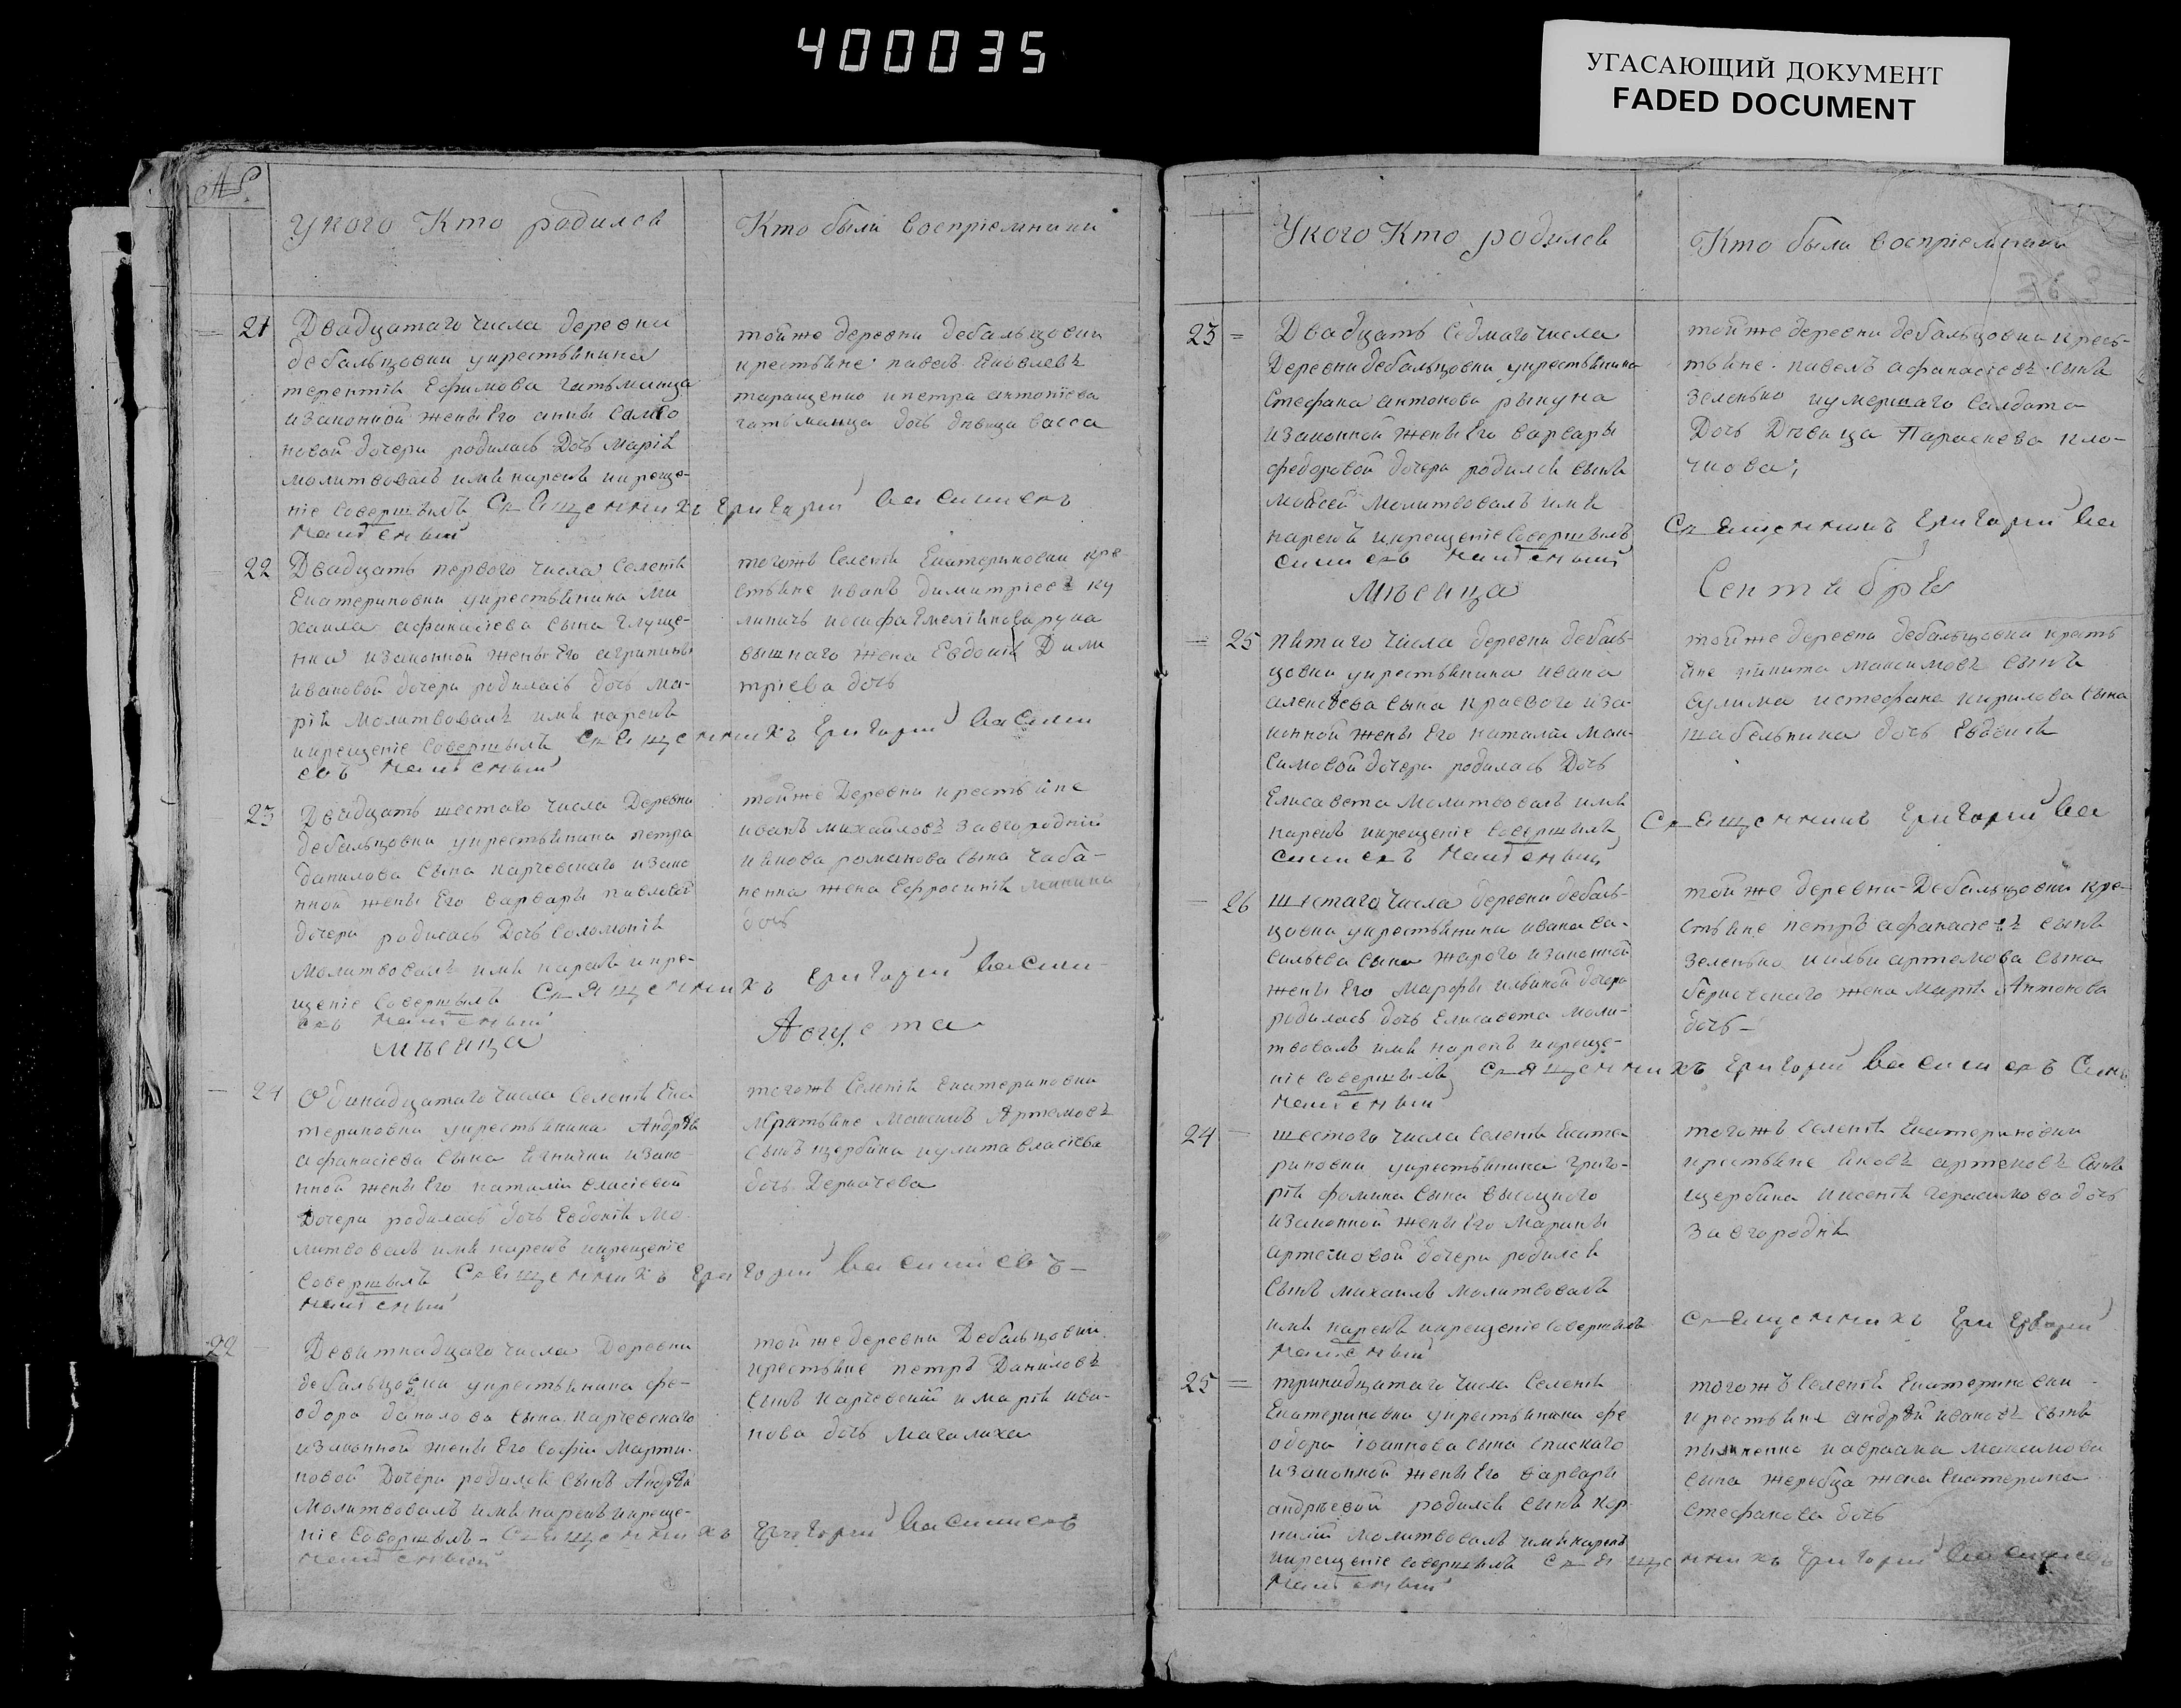 400035
УГАСАЮЩИЙ ДОКУМЕНТ
FADED DOCUMENT
У кого Кто родился
Кто были восприемники
21
Двадцатаго числа деревни
дебальцовки укрестьянина
терентія Ефимова гатьманца
изаконной жены Его анны
новой дочери родилась Дочь Марія
молитвовалъ имя нарекъ икреще-
ніе совершилъ Священникъ Григорій Василиевъ
тойже деревни дебальцовки
крестьяне павелъ Яковлевъ
таращенко ипетра антоніева
гатьманца дочь дѣвица васса
22
Двадцать перваго числа Селенія
Екатериновки укрестьянина Ми
хаила афанасіева сына глуще-
нка изаконной жены Его агрипины
ивановой дочери родилась дочь Ма-
рія молитвовалъ имя нарекъ
икрещеніе совершилъ Священникъ Григорій Васили
евъ
тогожъ Селенія Екатериновки кре-
стьяне иванъ димитріевъ ку
линичъ иосифа
вышнаго жена Евдокія Дими
тріева дочь
23
Двадцать шестаго числа Деревни
дебальцовки укрестьянина петра
данилова сына карчевскаго изако
нной жены Его варвары павловой
дочери родилась Дочь соломонія
Молитвовалъ имя нарекъ икре-
щеніе совершилъ Священникъ Григорій Васили-
евъ
тойже Деревни крестьяне
иванъ михайловъ Завгородній
ивнова романова сына чаба-
ненка жена Ефросинія
дочь
мѣсяца
Августа
24
Одинадцатаго числа Селенія Ека
териновки укрестьянина Андрѣя
афанасіева сына изако-
нной жены Его наталіи власіевой
Дочери родилась дочь Евдокія Мо-
литвовалъ имя нарекъ икрещеніе
совершилъ Священникъ Григорій Василиевъ-
тогожъ Селенія Екатериновки
Максимъ Артемовъ
сынъ щербина иулита власіева
дочь Деркачева
22
Девятнадцаго числа Деревни
дебальцовки укрестьянина фе-
одора данилова сына карчевскаго
изаконной жены Его софіи Марти-
новой Дочери родился сынъ Андрѣй
Молитвовалъ имя нарекъ икреще-
ніе совершилъ- Священникъ Григорій Василиевъ
тойже деревни Дебальцовки
крестьяне петръ Даниловъ
сынъ карчевскій имарія ива-
нова дочь Магалиха
У кого Кто родился
Кто были восприемники
23
Двадцать седмаго числа
Деревни дебальцовки укрестьянина
Стефана антонова рыкуна
изаконной жены Его варвары
федоровой дочери родился сынъ
Моисей Молитвовалъ имя
нарекъ икрещеніе совершилъ
тойже деревни дебальцовки крес-
тьяне павелъ афанасіевъ сынъ
зеленько иумершаго салдата
Дочь Дѣвица Параскева кло-
чкова;
Священникъ Григорій Ва
силиевъ
Мѣсяца
Сентября
25
пятаго числа деревни дебаль-
цовки укрестьянина ивана
алексѣева сына краевого иза-
конной жены Его наталіи Мак-
симовой дочери родилась Дочь
Елисавета Молитвовалъ имя
нарекъ икрещеніе совершилъ
тойже деревни дебальцовки кресть
яне никита максимовъ сынъ
сулима истефана кирилова сына
шабельника дочь Евдокія
Священникъ Григорій Ва
силиевъ
26
шестаго числа деревни дебаль-
цовки укрестьянина ивана ва-
сильева сына жарого изаконной
жены Его Марфы ильиной дочери
родилась дочь Елисавета моли-
твовалъ имя нарекъ икреще-
ніе совершилъ Священникъ Григорій Василиевъ
тойже деревни Дебальцовки кре-
стьяне петръ афанасіевъ сынъ
зеленько иильи артемова сына
жена Марія Антонова
дочь-
24
шестого числа Селенія Екате-
риновки укрестьянина григо-
рія фомина сына высоцкого
изаконной жены Его Марины
артемовой дочери родился
сынъ михаилъ молитвовалъ
имя нарекъ икрещеніе совершилъ
тогожъ Селенія Екатериновки
крестьяне яковъ артемовъ сынъ
щербина иксенія герасимова дочь
завгородня
Священникъ Григорій
25
тринадцатаго числа Селенія
Екатериновки укрестьянина фе
одора іоаннова сына спискаго
изаконной жены Его варвары
андрѣевой родился сынъ кор
нилій молитвовалъ имя нарекъ
икрещеніе совершилъ Священникъ Григорій Василиевъ
тогожъ Селенія Екатериновки
крестьяне андрѣй ивановъ сынъ
иавраама максимова
сына жеребца жена Екатерина
стефанова дочь